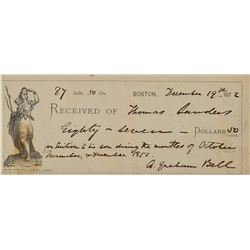 87 Dolls. 50 Cts. BOSTON, December 19th 1872
RECEIVED OF Thomas Sanders
Eighty-seven — DOLLARS 50/100
for tuition to his son during the months of October
November, & December 1872.
A. Graham Bell